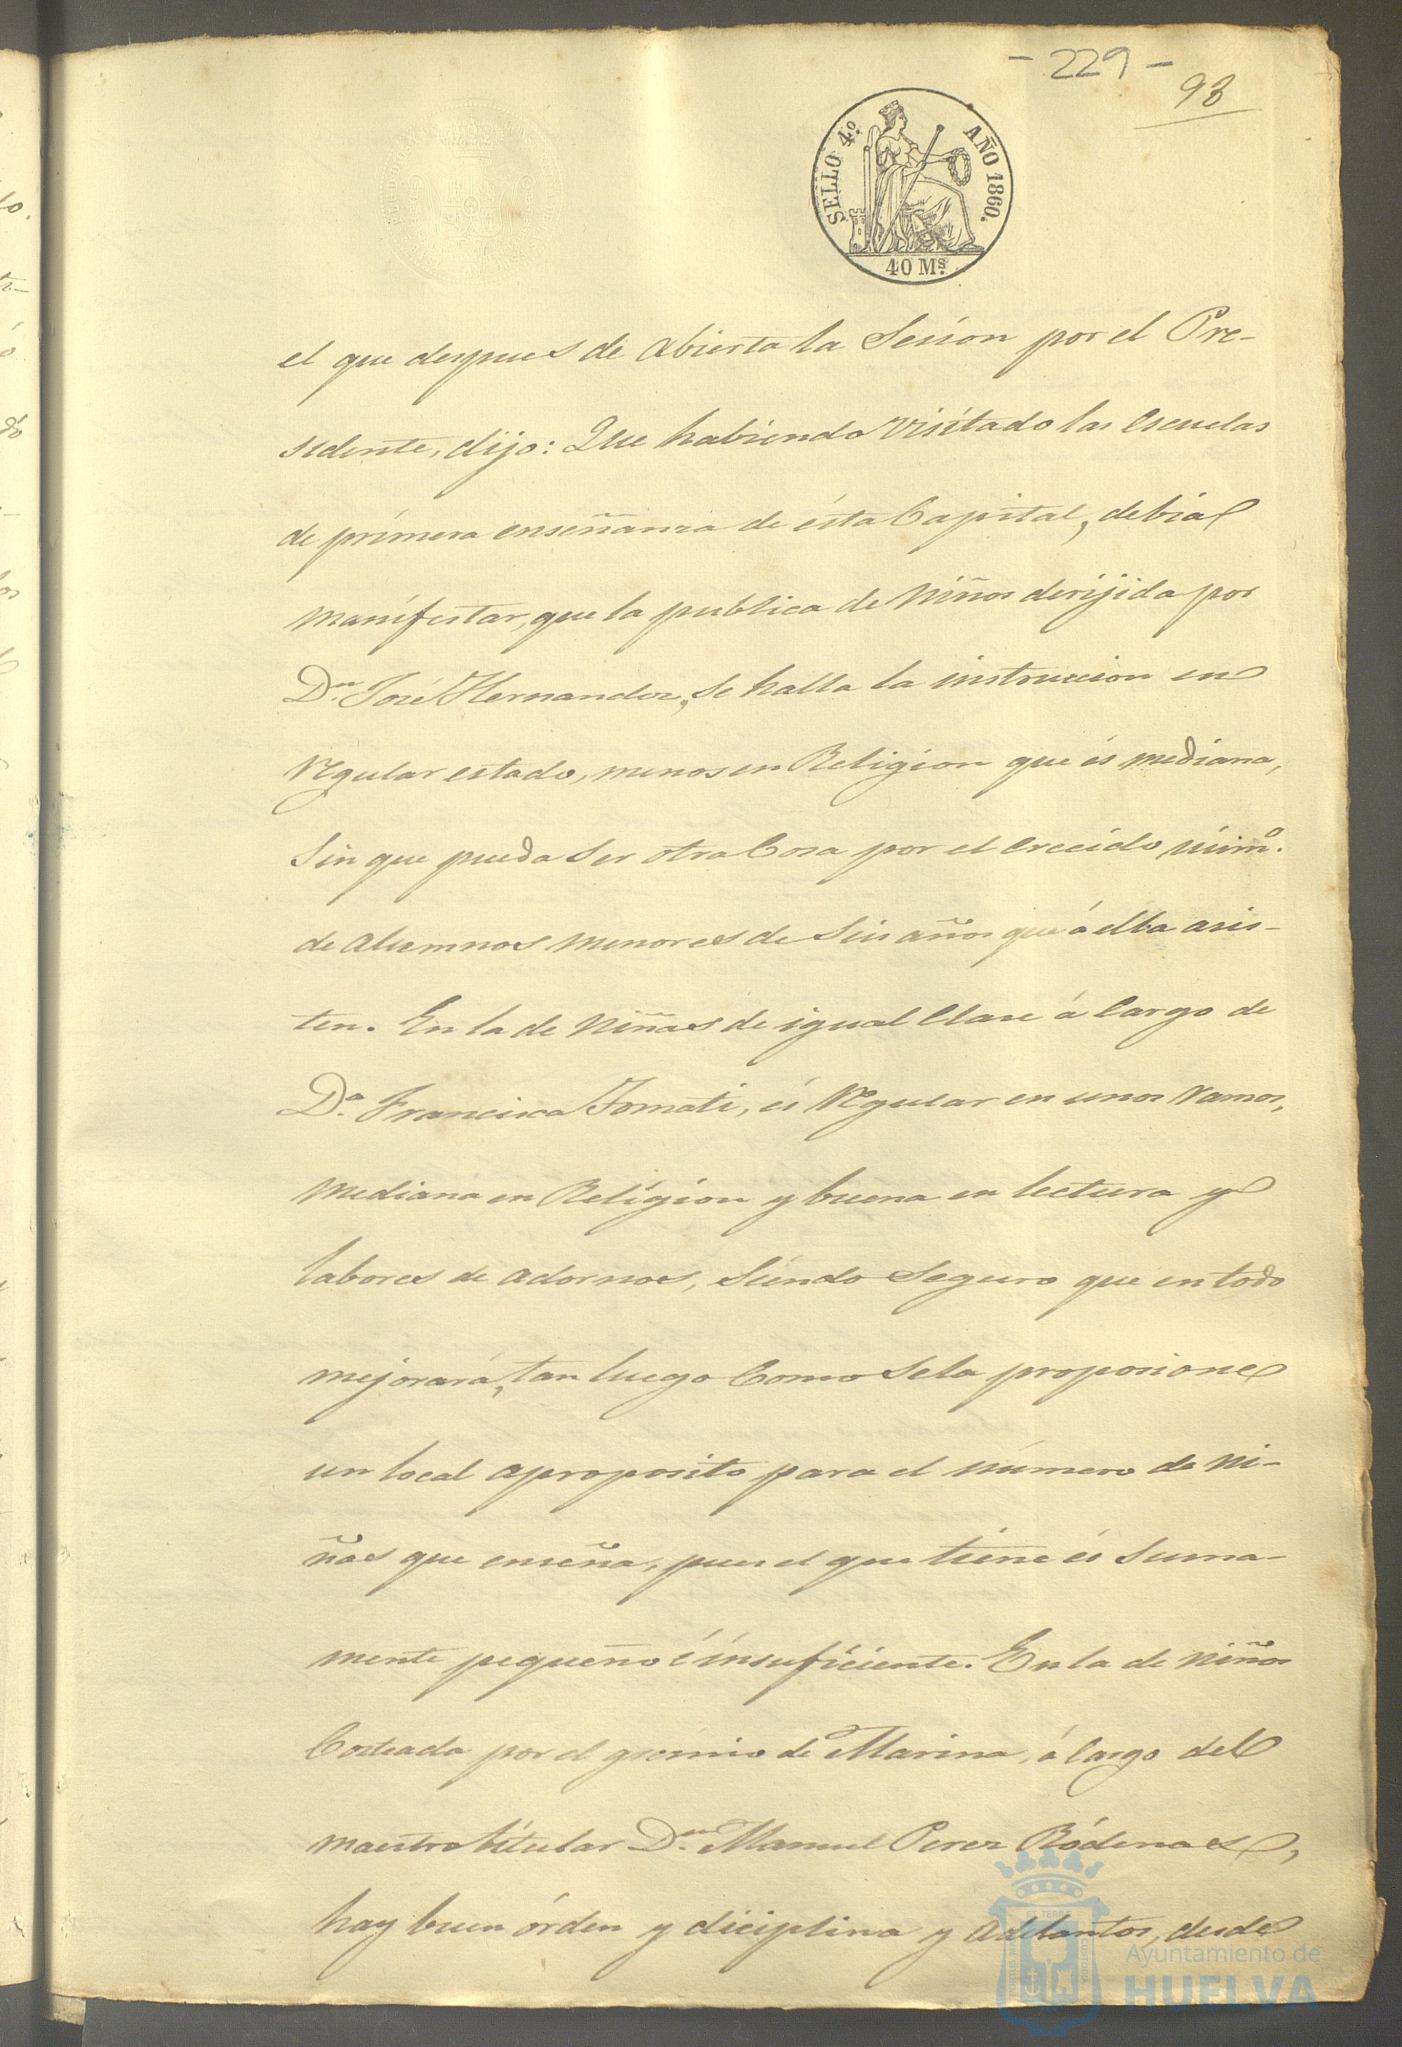 - 229 -
93
SELLO 4º AÑO 1860.
40 Ms.
el que despues de abierta la Sesion por el Pre-
sidente, dijo: Que habiendo visitado las escuelas
de primera enseñanza de ésta Capital, debia
manifestar, que la publica de niños dirijida por
Dn. José Hernandez, se halla la instruccion en
regular estado, menos en Religion que és mediana,
sin que pueda ser otra Cosa por el crecido núm.º
de alumnos menores de seis años que á ella asis-
ten. En la de niñas de igual Clase á Cargo de
D.ª Francisca Tomati, és regular en unos ramos,
mediana en Religion y buena en lectura y
labores de adornos, siendo seguro que en todo
mejorará, tan luego Como se la proporcione
un local aproposito para el número de ni-
ñas que enseña, pues el que tiene és suma-
mente pequeño é insuficiente. En la de niños
Costeada por el gremio de Marina, á Cargo del
maestro titular Dn. Manuel Perez Ródenas,
hay buen órden y diciplina y adelantos, desde
Ayuntamiento de
HUELVA